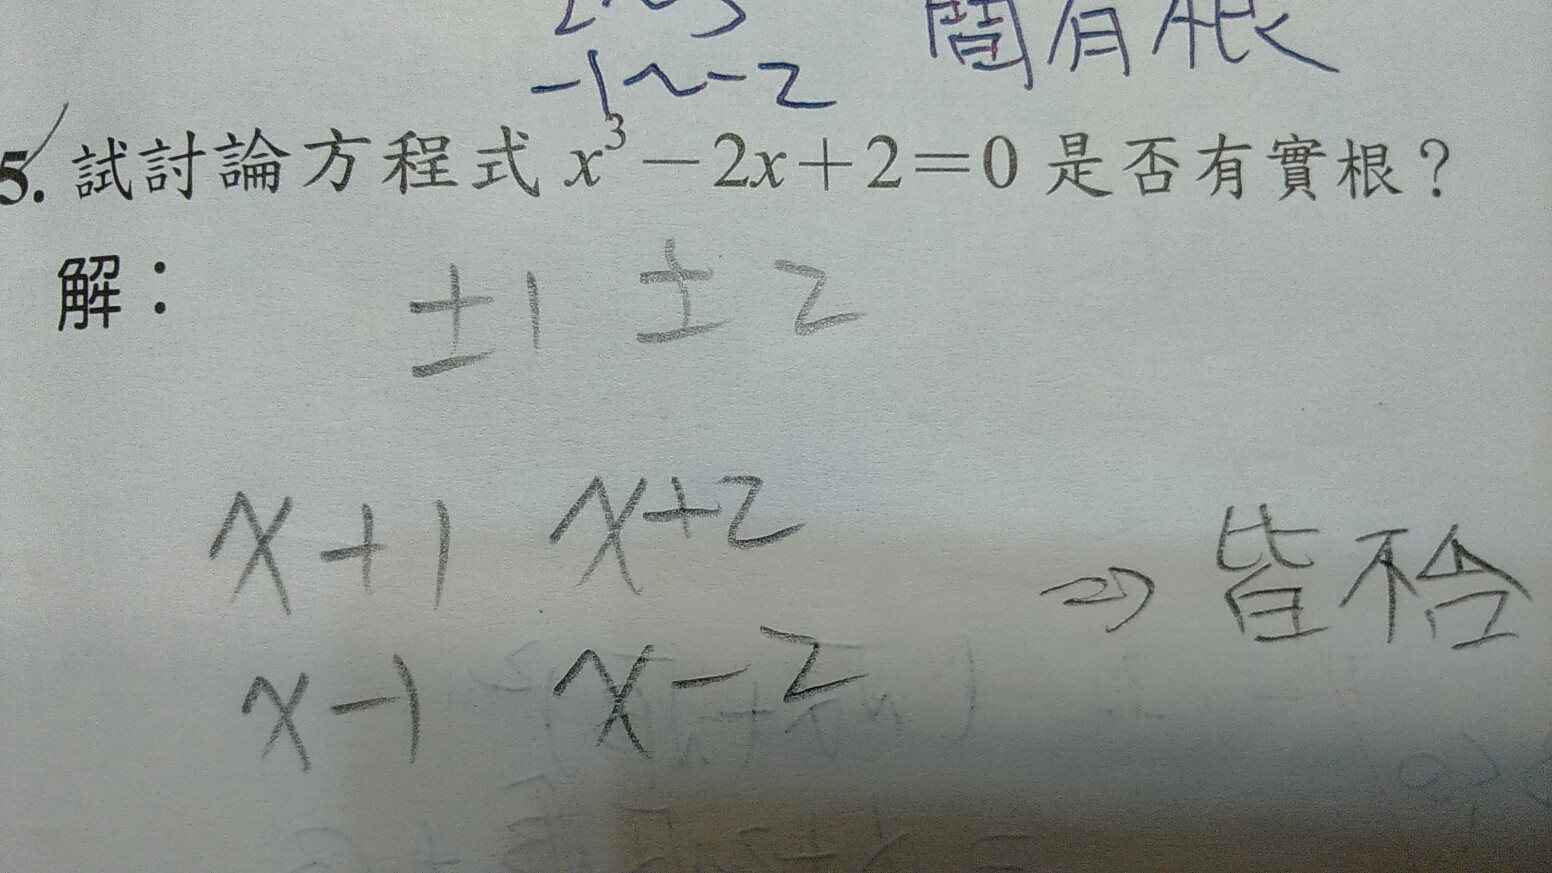 2~3 間有根
-1~-2
5. 試討論方程式 x³-2x+2=0 是否有實根？
解：
±1 ±2
x+1 x+2
⇒ 皆不合
x-1 x-2